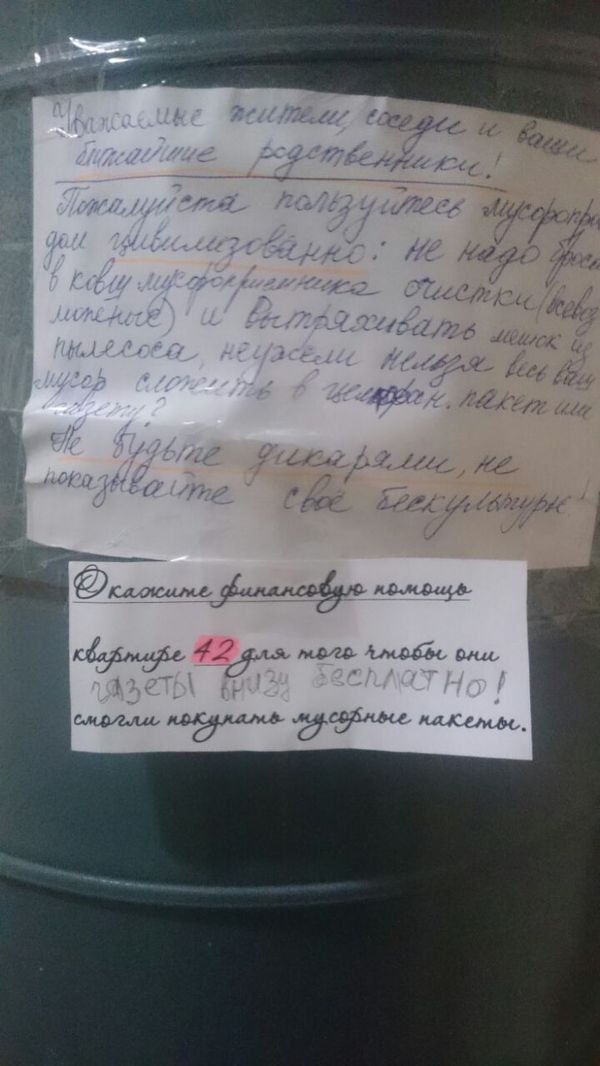 Уважаемые жители, соседи и ваши
ближайшие родственники!
Пожалуйста пользуйтесь мусоропрово
дом цивилизованно: не надо брос
в ковш мусороприемника очистки (всевоз
можные) и вытряхивать мешок из
пылесоса, неужели нельзя весь ваш
мусор сложить в целофан. пакет или
газету?
Не будьте дикарями, не
показывайте своё бескультурье!
Окажите финансовую помощь
квартире 42 для того чтобы они
газеты внизу бесплатно!
смогли покупать мусорные пакеты.